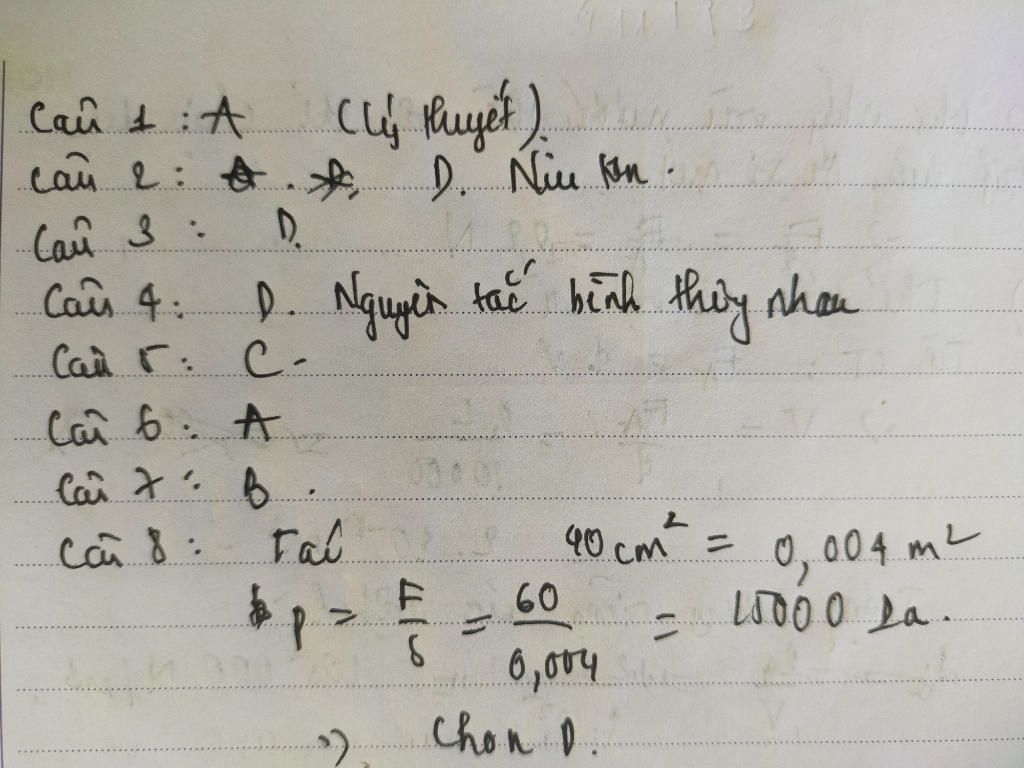 Câu 1 : A (Lý thuyết)
Câu 2 : D. Niu tơn.
Câu 3 : D.
Câu 4 : D. Nguyên tắc bình thông nhau
Câu 5 : C.
Câu 6 : A
Câu 7 : B.
Câu 8 : 40 cm² = 0,004 m²
p = F/S = 60/0,004 = 15000 Pa.
=> Chọn D.